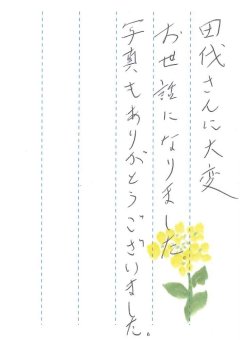 田代さんに大変
お世話になりました
写真もありがとうございました。